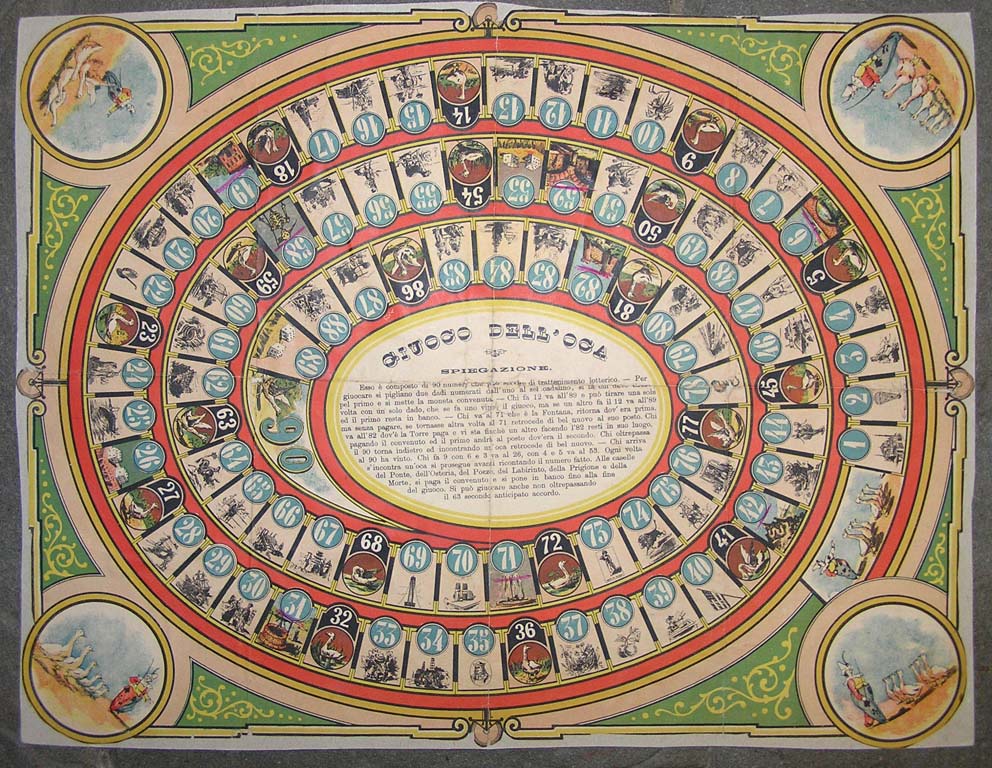 GIUOCO DELL'OCA
SPIEGAZIONE.
Esso è composto di 90 numeri che può servire di trattenimento lotterico. — Per
giuocare si pigliano due dadi numerati dall'uno al sei cadauno, si fa chi deve
pel primo e si mette la moneta convenuta. — Chi fa 12 va all'89 e può tirare una sola
volta con un solo dado, che se fa uno vince il giuoco, ma se un altro fa il 12 va all'89
ed il primo resta in banco. — Chi va al 71 che è la Fontana, ritorna dov'era prima,
ma senza pagare, se tornasse altra volta al 71 retrocede di bel nuovo al suo posto. Chi
va all'82 dov'è la Torre paga e vi sta finchè un altro facendo l'82 resti in suo luogo,
pagando il convenuto ed il primo andrà al posto dov'era il secondo. Chi oltrepassa
il 90 torna indietro ed incontrando un'oca retrocede di bel nuovo. — Chi arriva
al 90 ha vinto. Chi fa 9 con 6 e 3 va al 26, con 4 e 5 va al 53. Ogni volta
s'incontra un'oca si prosegue avanti ricontando il numero fatto. Alle caselle
del Ponte, dell'Osteria, del Pozzo, del Labirinto, della Prigione e della
Morte, si paga il convenuto e si pone in banco fino alla fine
del giuoco. Si può giuocare anche non oltrepassando
il 63 secondo anticipato accordo.
1
2
3
4
5
6
7
8
9
10
11
12
13
14
15
16
17
18
19
20
21
22
23
24
25
26
27
28
29
30
31
32
33
34
35
36
37
38
39
40
41
42
43
44
45
46
47
48
49
50
51
52
53
54
55
56
57
58
59
60
61
62
63
64
65
66
67
68
69
70
71
72
73
74
75
76
77
78
79
80
81
82
83
84
85
86
87
88
89
90